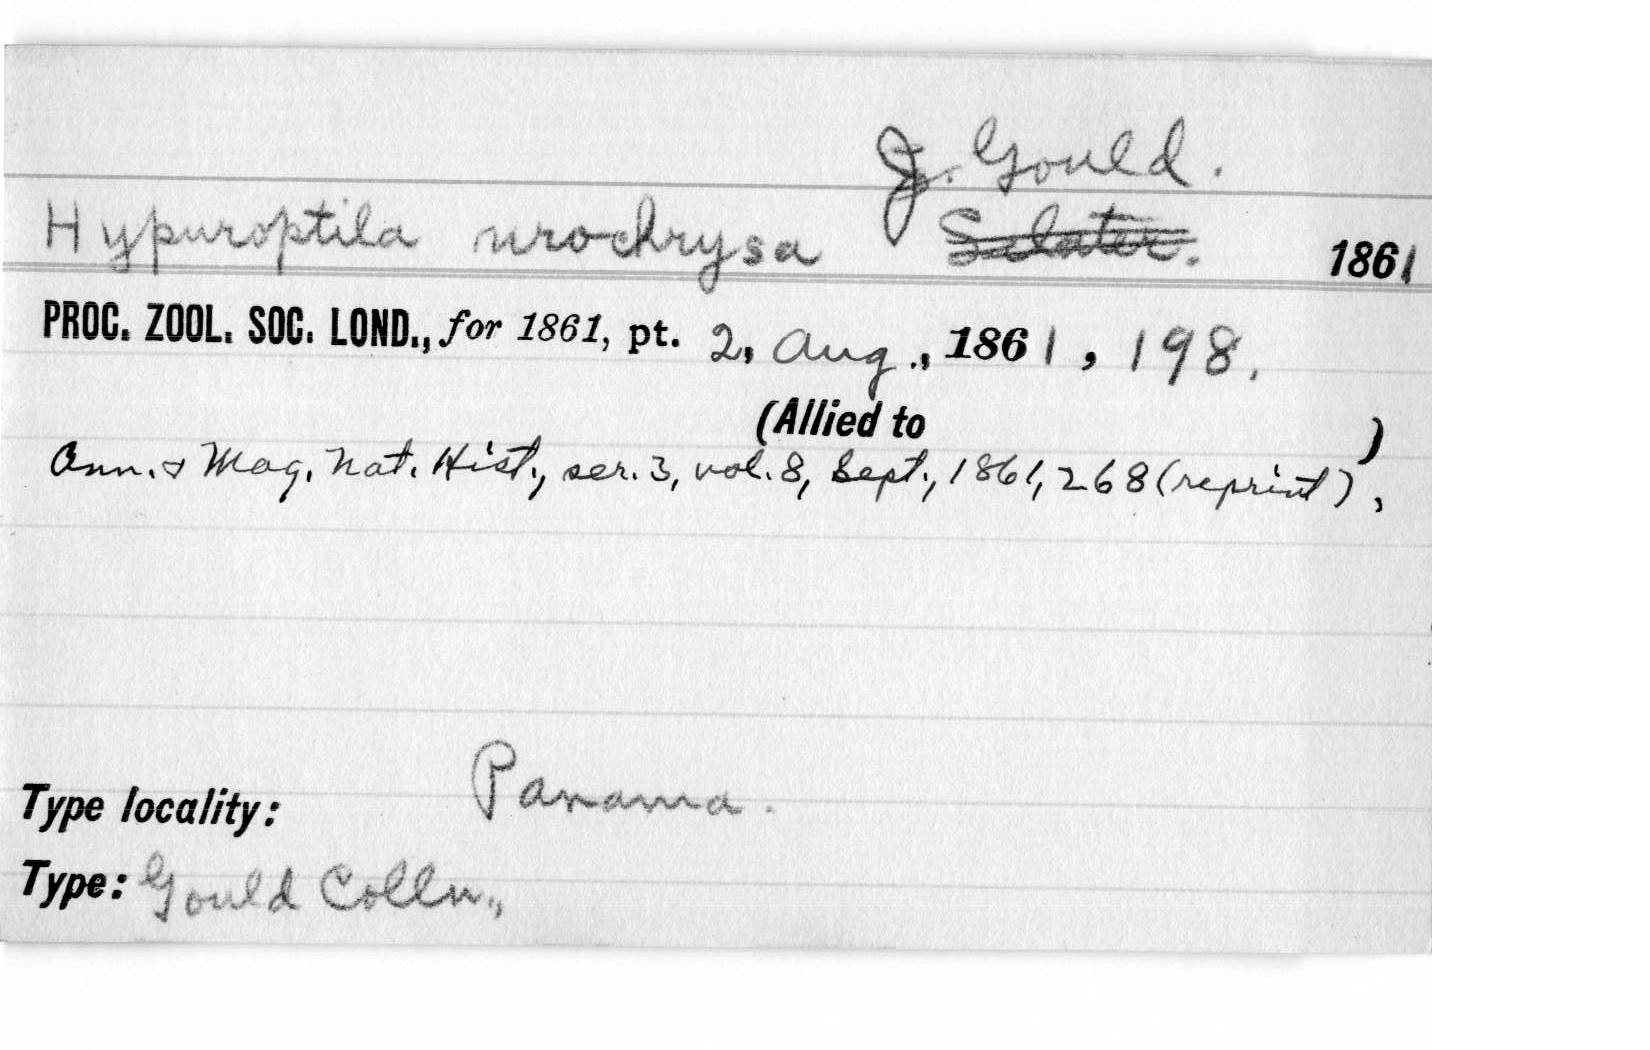 J. Gould.
Hypuroptila urochrysa Sclater. 1861
PROC. ZOOL. SOC. LOND., for 1861, pt. 2, Aug., 1861, 198.
(Allied to )
Ann. & Mag. Nat. Hist., ser. 3, vol. 8, Sept., 1861, 268 (reprint),
Type locality: Panama.
Type: Gould Colln.,